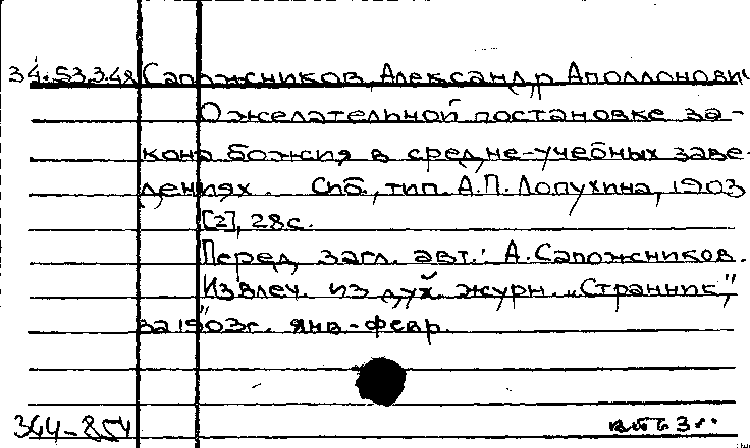 34.53.3.48 Сапожников, Александр Аполлонович
О желательной постановке за-
кона божия в средне-учебных заве-
дениях. Спб., тип. А.П. Лопухина, 1903
[2], 28с.
Перед загл. авт.: А. Сапожников.
Извлеч. из дух. журн. „Странник,"
за 1903г. янв.-февр.
344-854